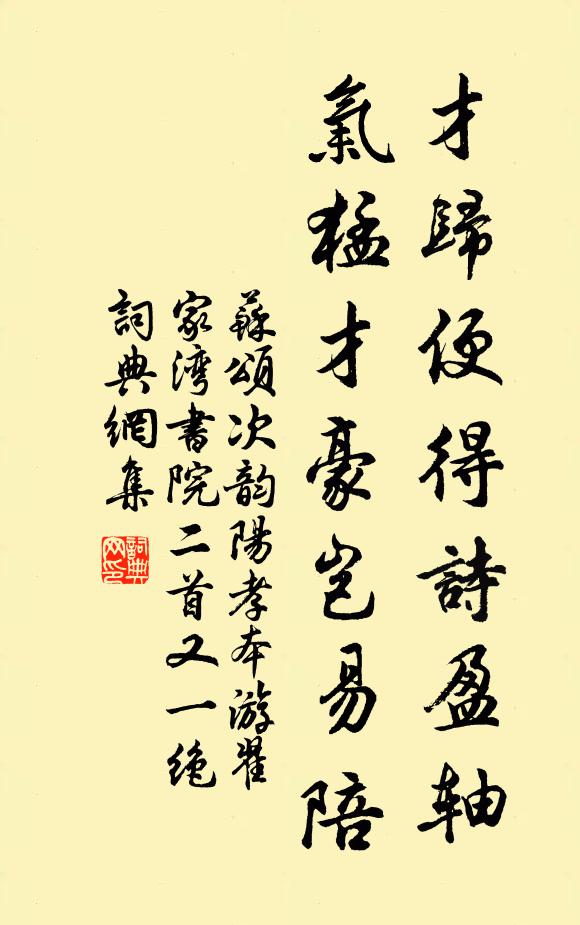 才歸便得詩盈軸
氣猛才豪豈易陪
蘇頌次韵陽孝本游翟
家湾書院二首又一絶
詞典網集
詞典
网印